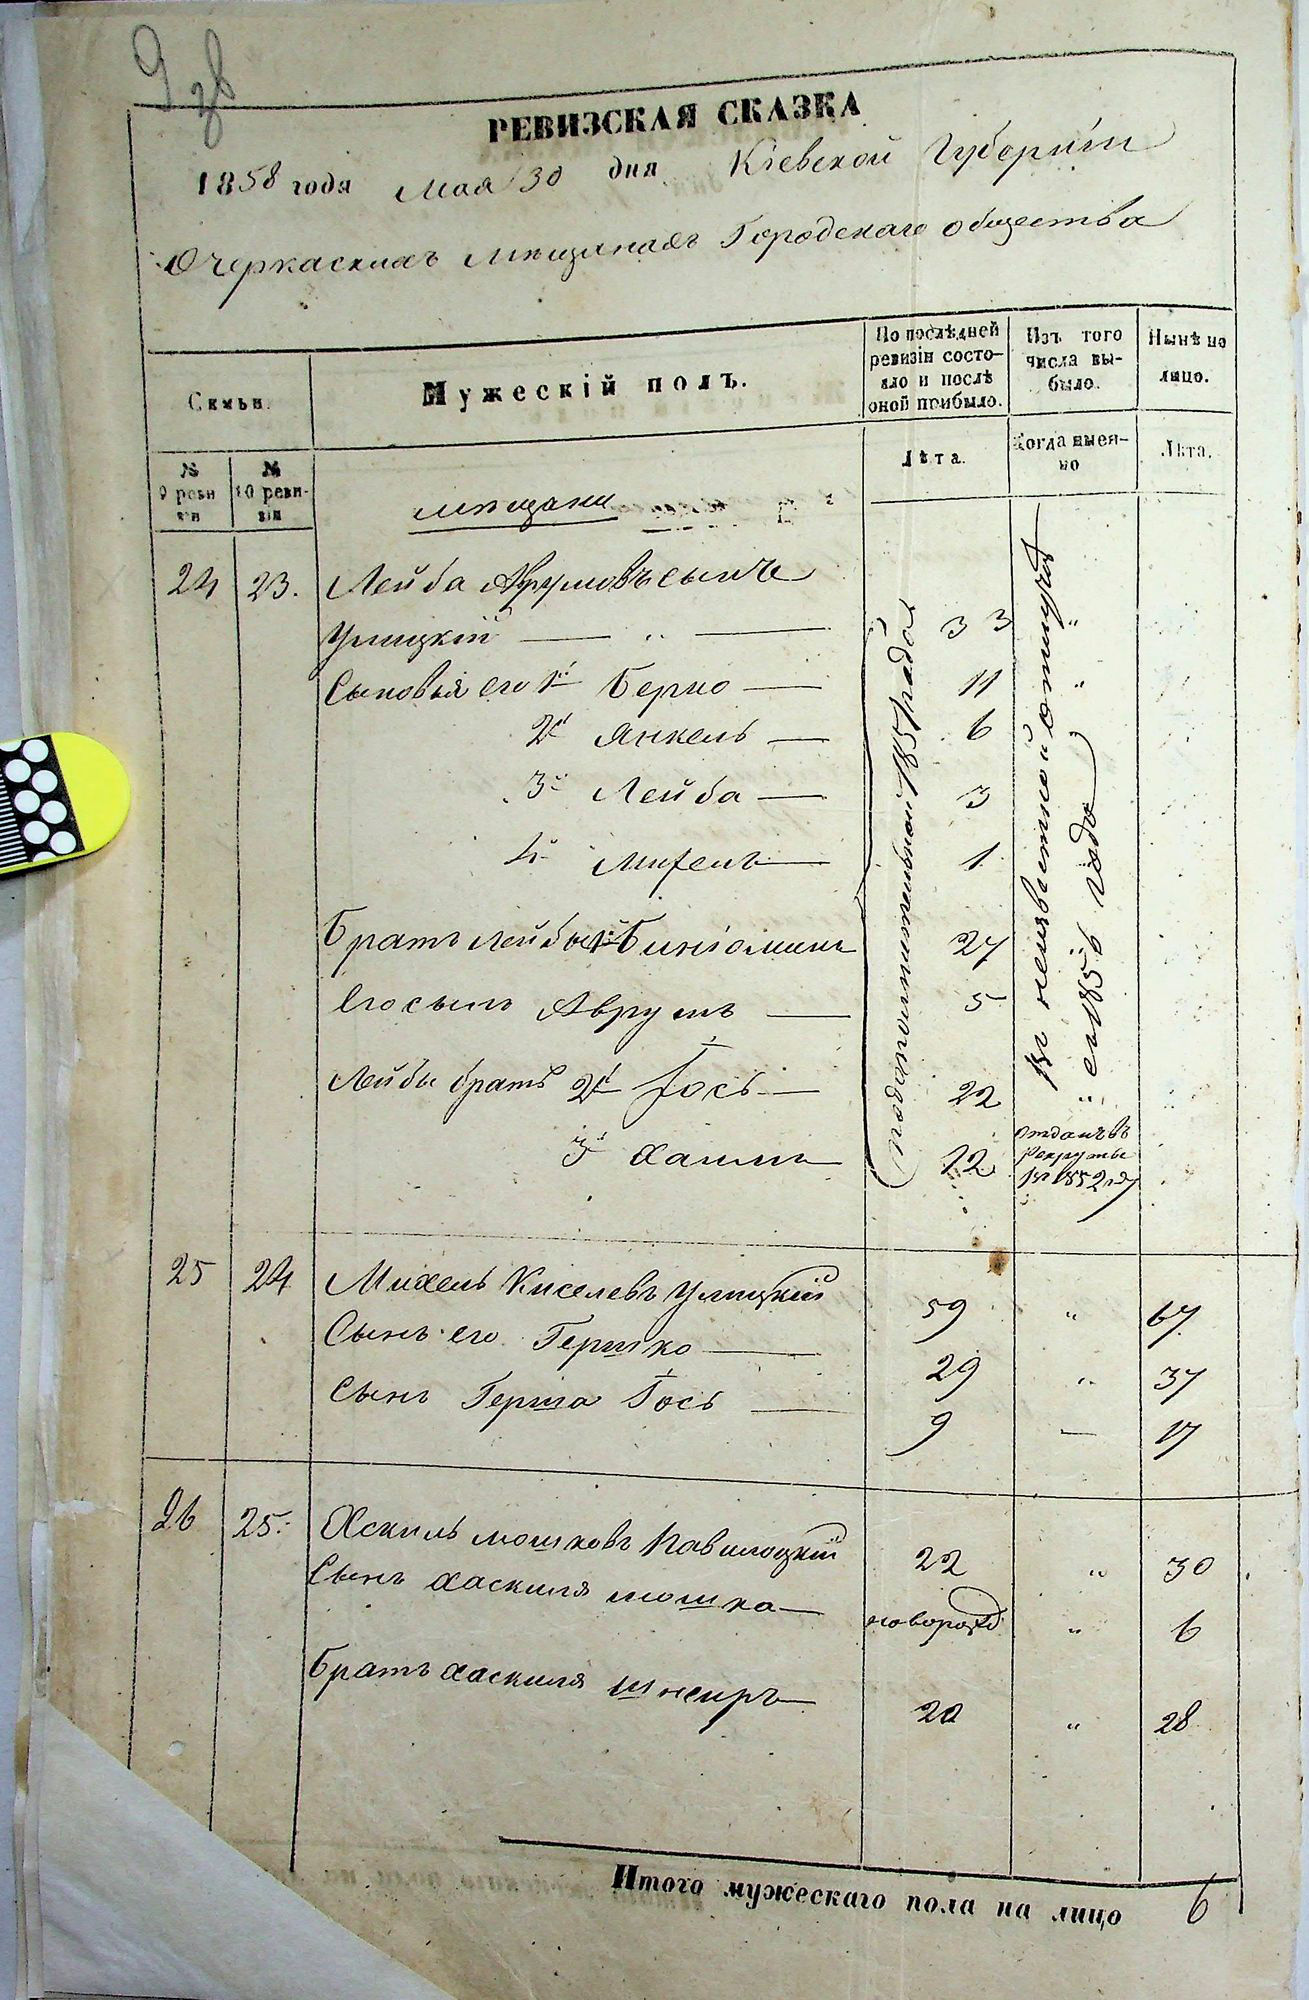 9 зв
РЕВИЗСКАЯ СКАЗКА
1858 года Мая 30 дня Кіевской Губерніи
О черкаскихъ мѣщанахъ Городскаго общества
Семьи.
Мужескій полъ.
По послѣдней ревизіи состояло и послѣ оной прибыло.
Изъ того числа выбыло.
Нынѣ на лицо.
№ 9 ревизіи
№ 10 ревизіи
Лѣта.
Когда именно
Лѣта.
мѣщани
24 23. Лейба Аврумовъ сынъ
Улицкій — „ — 33 „
Сыновья его 1й Берко — 11 „
2й Янкель — 6
3й Лейба — 3
4й Михель — 1
Братъ Лейбы 1й Биніоминъ 27
Его сынъ Аврумъ — 5
Лейбы братъ 2й Іось — 22 „
3й Хаимъ 12 отданъ въ рекруты въ 1852 году
по дополнительной 185
въ неизвѣстной отлучкѣ
съ 1856 года
25 24 Михель Киселевъ Улицкій 59 „ 67
Сынъ его Гершко — 29 „ 37
Сынъ Герша Іось — 9 — 17
26 25. Хаскиль Мошковъ Паволоцкій 22 „ 30
Сынъ Хаскиля Мошко — новорожд „ 6
Братъ Хаскиля Шнеиръ — 20 „ 28
Итого мужескаго пола на лицо 6